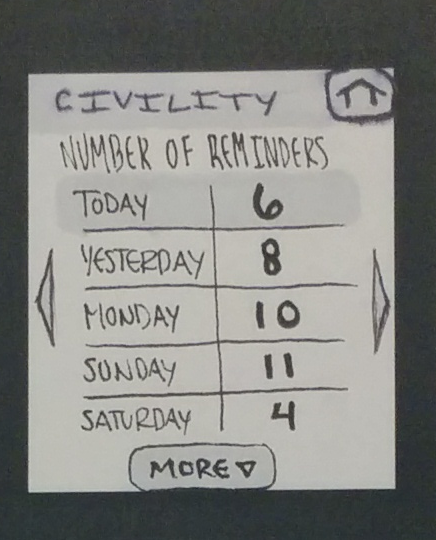 CIVILITY
NUMBER OF REMINDERS
TODAY 6
YESTERDAY 8
MONDAY 10
SUNDAY 11
SATURDAY 4
MORE